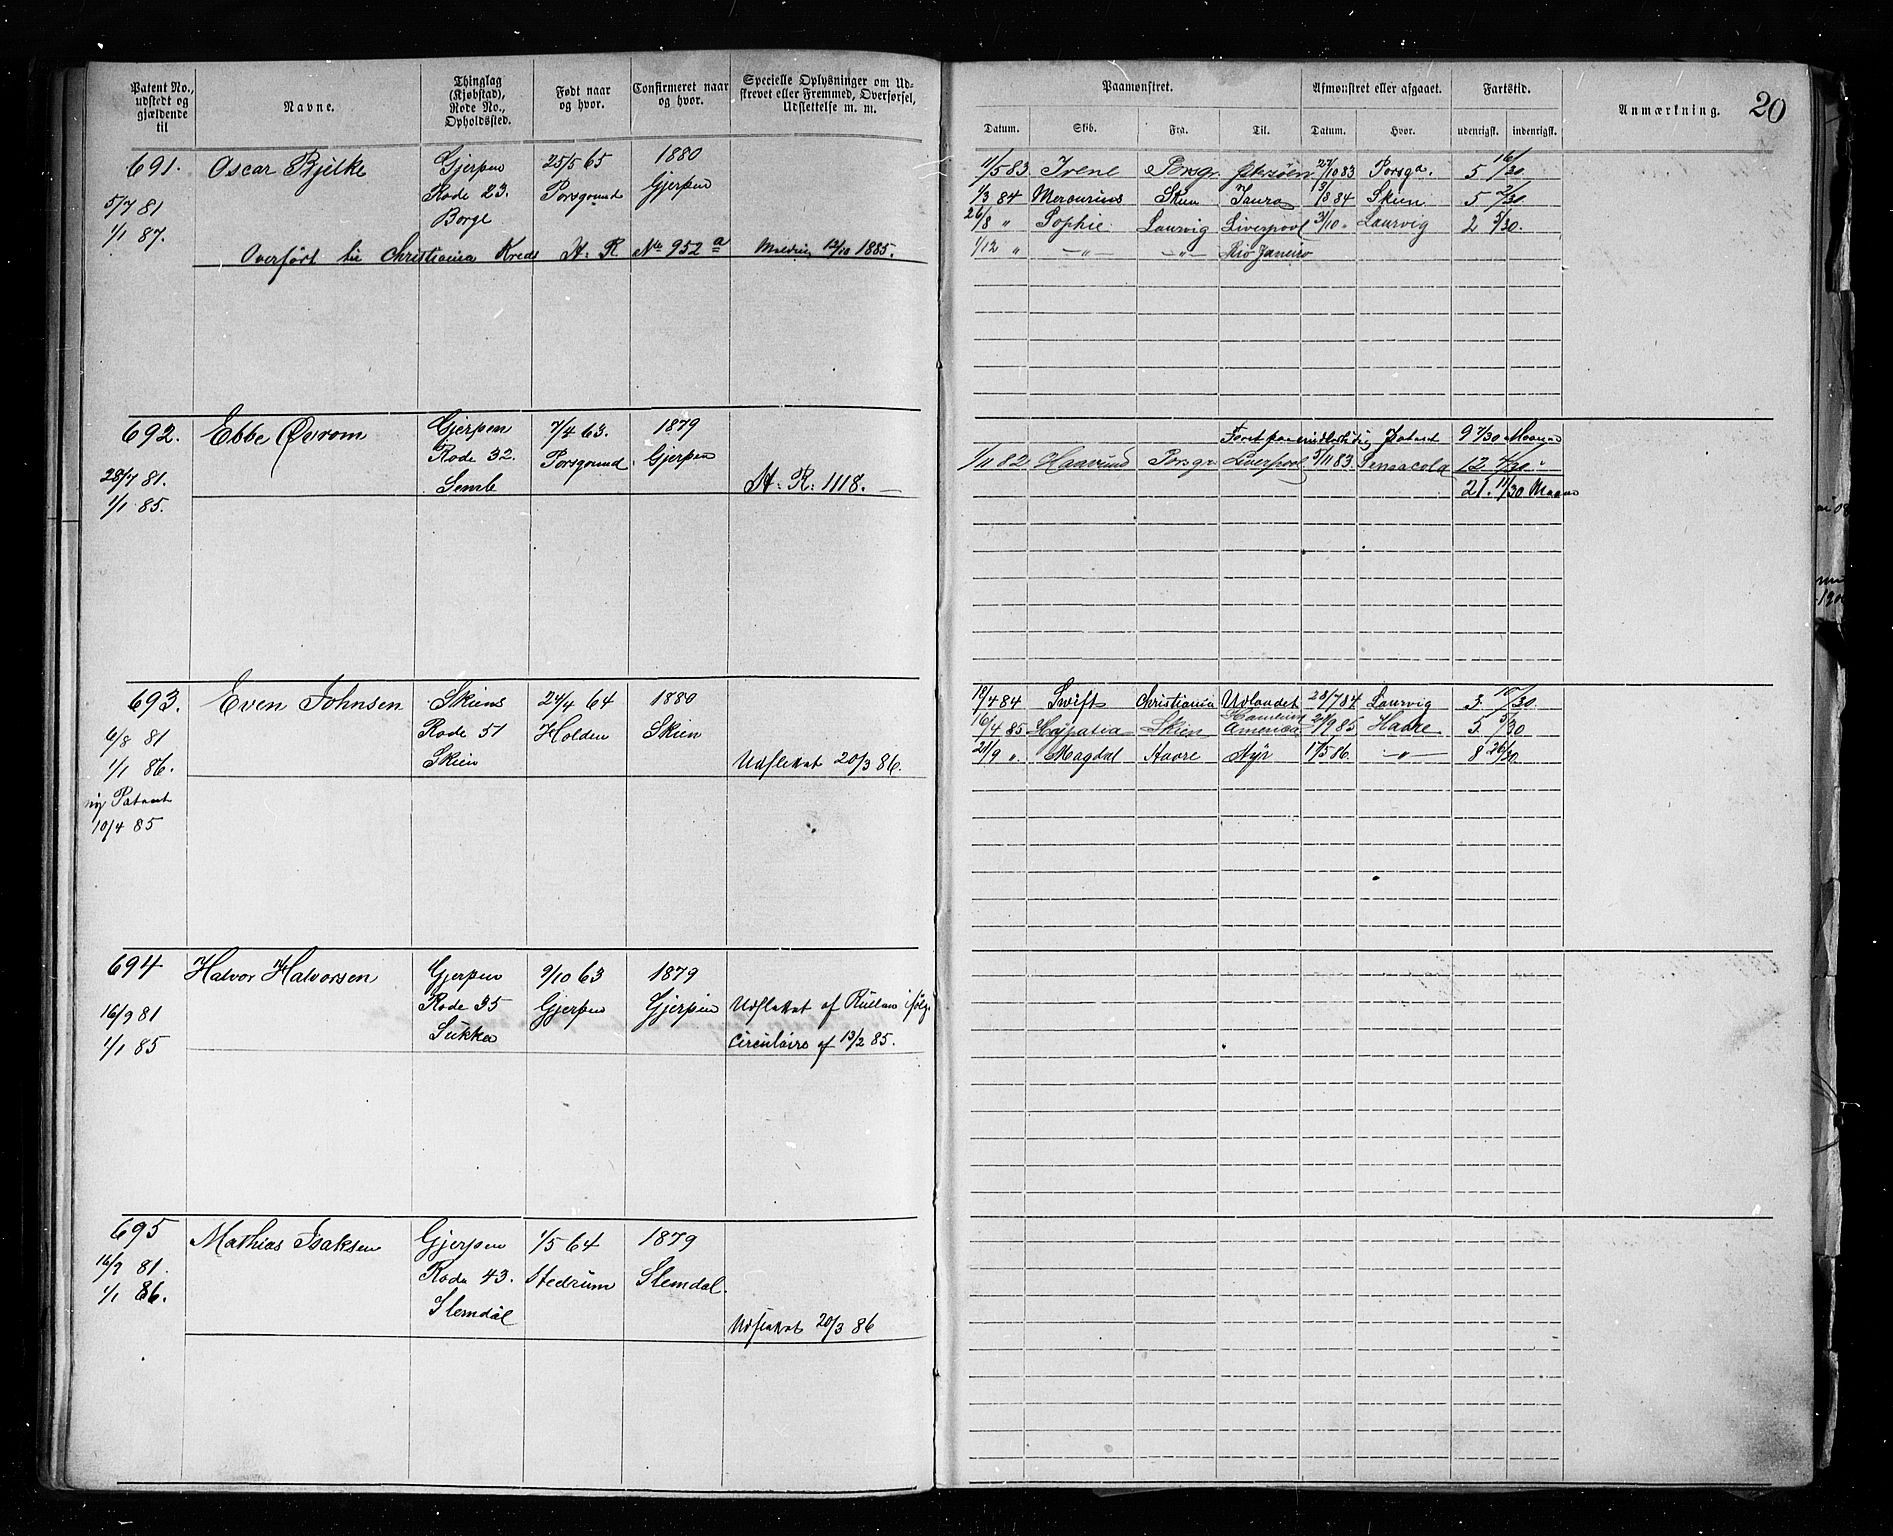 Patent No., udstedt og gjældende til
Navne.
Thinglag (Kjøbstad), Rode No., Opholdssted.
Født naar og hvor.
Confirmeret naar og hvor.
Specielle Oplysninger om Udskrevet eller Fremmed, Overførsel, Udslettelse m. m.
Paamønstret.
Afmønstret eller afgaaet.
Fartstid.
Anmærkning.
20
Datum. Skib. Fra. Til. Datum. Hvor. udenrigsk. indenrigsk.
691. Oscar Bjelke Gjerpen 25/5 65 1880
Rode 23. Porsgrund Gjerpen
5/7 81 Borge
1/1 87.
Overført til Christiania Kreds A. R No 952 a 12/10 1885.
11/5 83 Irene Porsgr Østersøen 27/10 83 Porsgr. 5 16/30
1/3 84 Mercurius Skien 3/8 84 Skien. 5 2/30
26/8 " Sophie Laurvig Liverpool 3/10 " Laurvig 2 5/30.
1/12 " —"— —"— Rio Janeiro
692. Ebbe Gjerpen 7/4 63. 1879
Rode 32. Porsgrund Gjerpen
28/7 81. Semb A. R. 1118.
1/1 85.
Patent 9 7/30 Maaned
1/11 82 Haavund Porsgr. Liverpool 5/11 83 Pensacola 12 4/30 "
21. 11/30 Maaned
693. Even Johnsen Skiens 24/4 64 1880
6/8 81 Rode 51 Holden Skien
1/1 86. Skien Udslettet 20/3 86.
ny Patent
10/4 85
18/4 84 Swift Christiania Udlandet 28/7 84 Laurvig 3. 10/30
16/4 85 Hypatia Skien America 21/9 85 Havre 5. 5/30
21/9 " Magdal Havre Nyr 17/5 86. —"— 8 26/30
694 Halvor Halvorsen Gjerpen 9/10 63 1879
16/9 81 Rode 35 Gjerpen Gjerpen Udslettet af Rullen ifølg.
1/1 85 Sükka Circulaire af 13/2 85.
695 Mathias Isaksen Gjerpen 1/5 64 1879
16/9 81. Rode 43. Hedrum Slemdal.
1/1 86. Slemdal
Udslettet 20/3 86